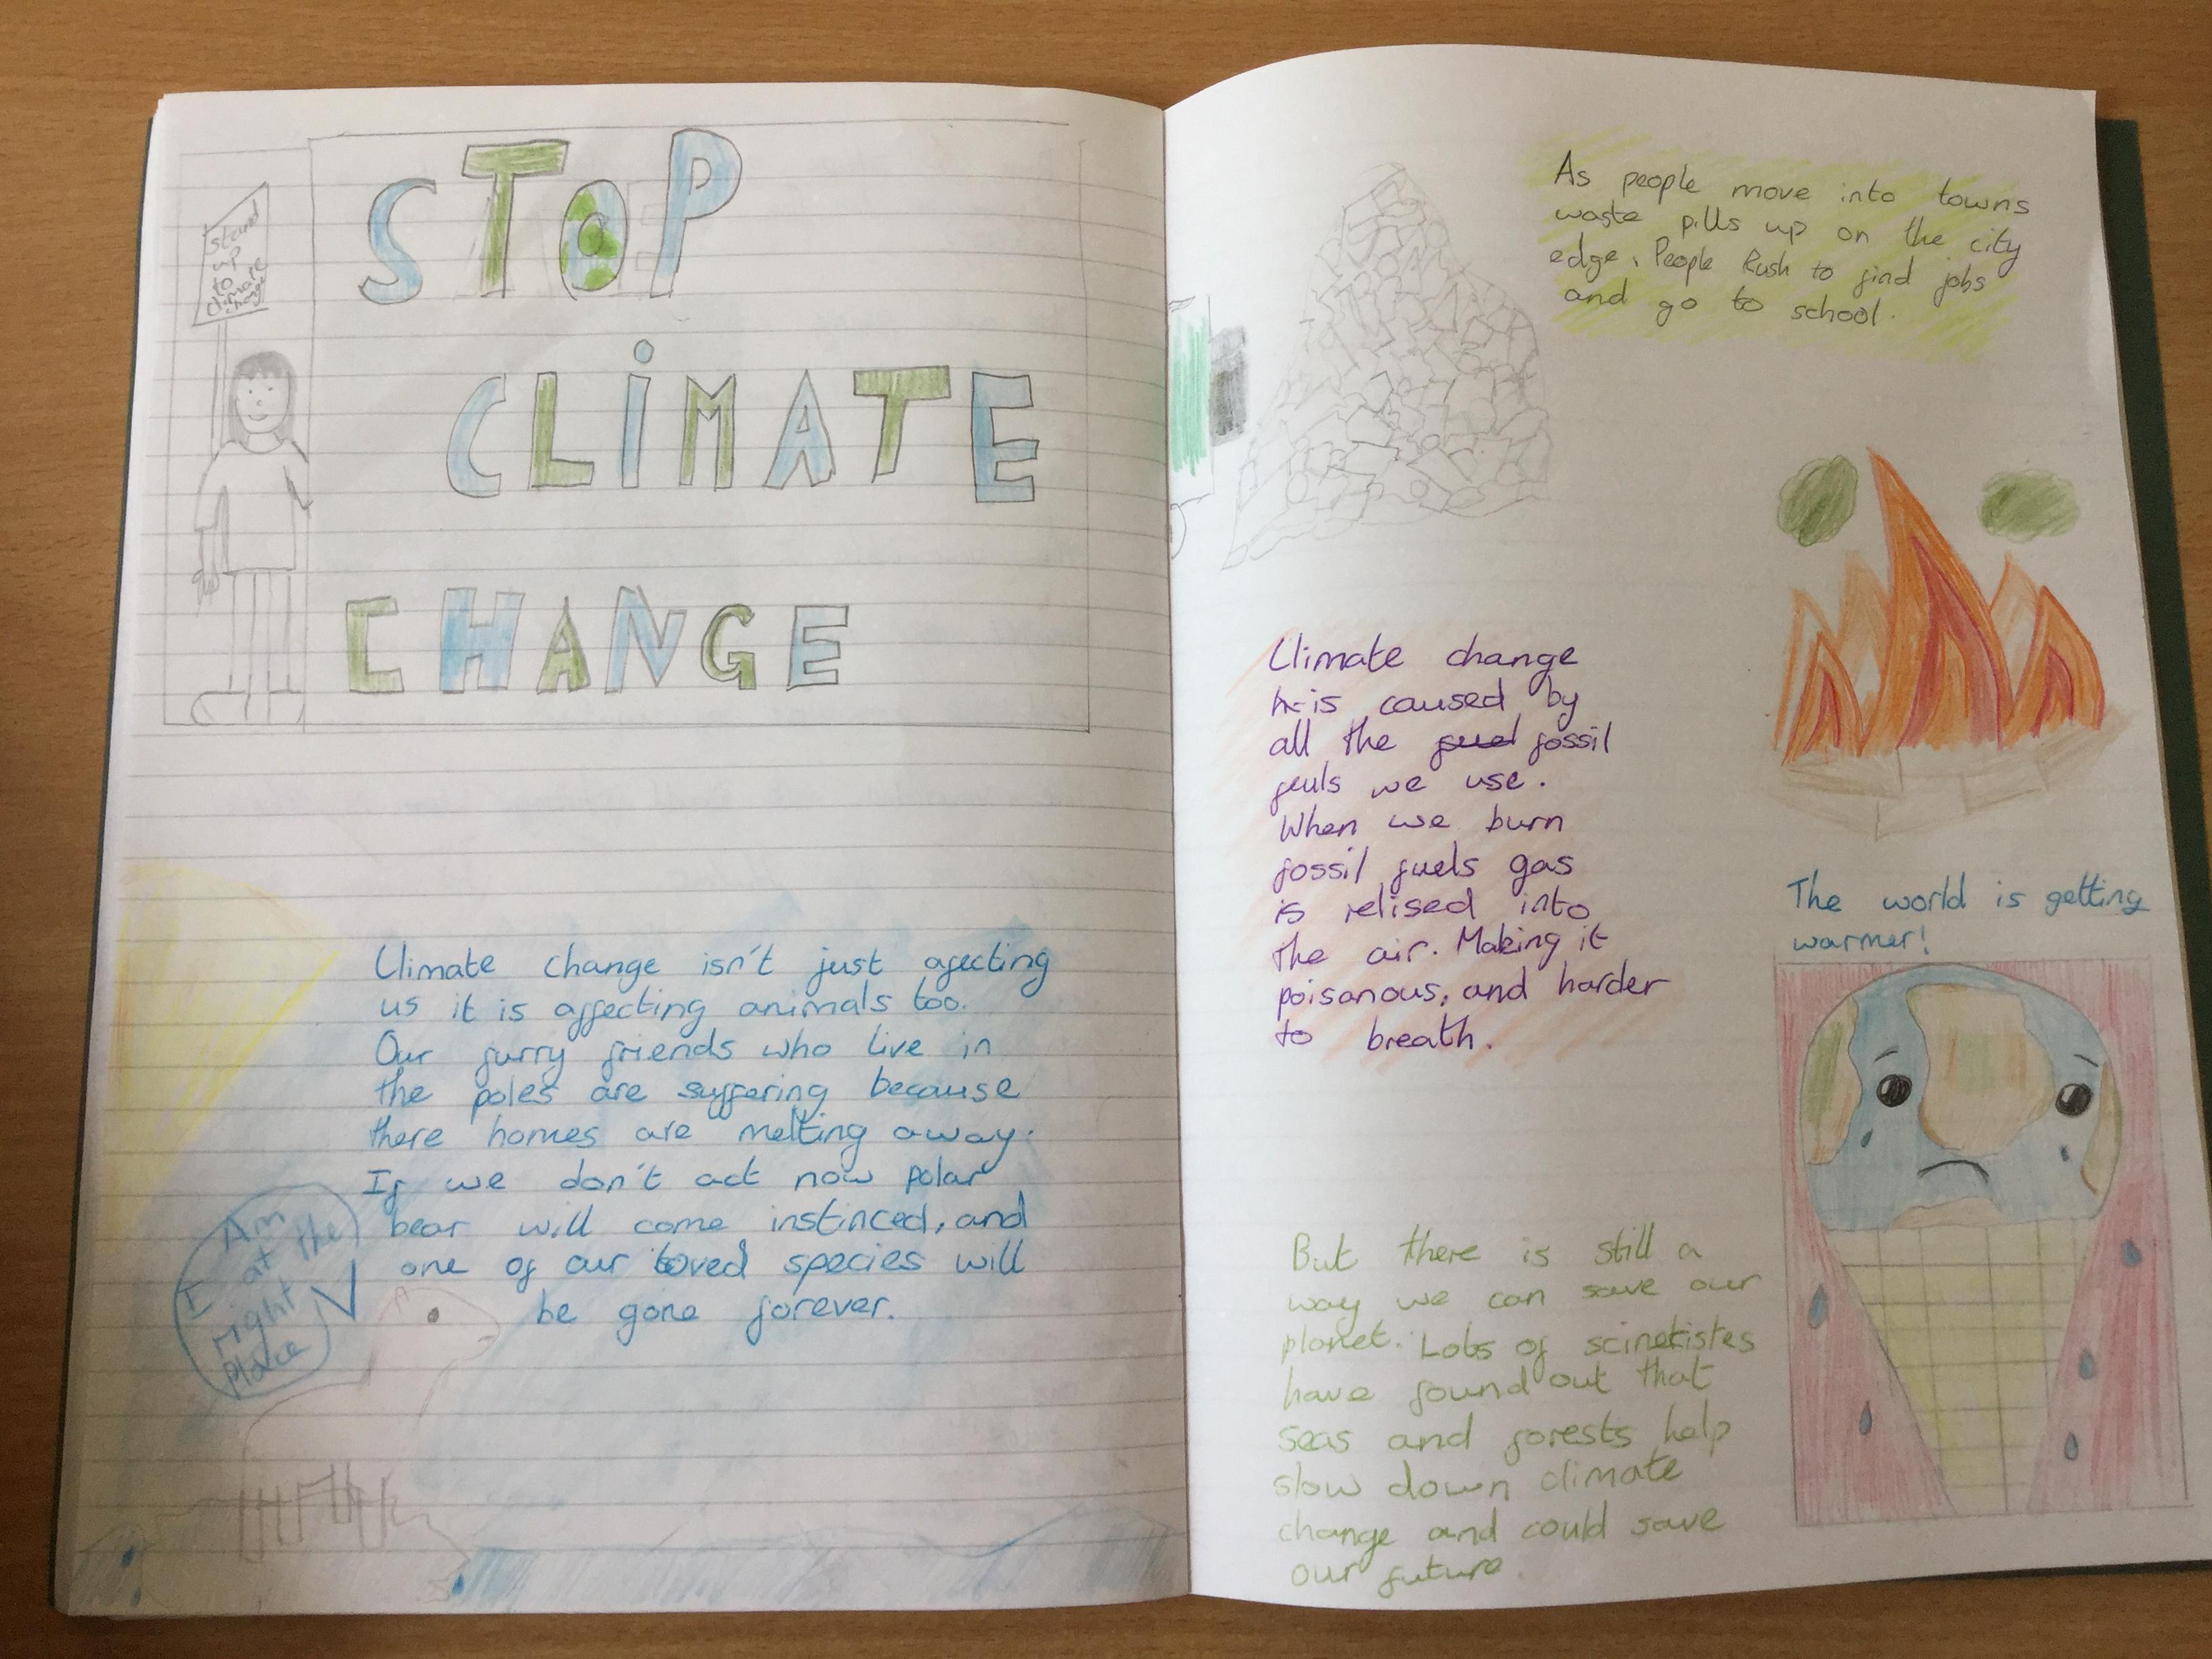 STOP
CLiMATE
CHANGE
stand
up
to
climate
change
Climate change isn't just afecting
us it is affecting animals too.
Our furry friends who live in
the poles are suffering because
there homes are melting away.
If we don't act now polar
bear will come instinced, and
one of our loved species will
be gone forever.
Am
I at the
right
place
As people move into towns
waste pills up on the city
edge. People Rush to find jobs
and go to school.
Climate change
is caused by
all the fuel fossil
feuls we use.
When we burn
fossil fuels gas
is relised into
the air. Making it
poisanous, and harder
to breath.
The world is getting
warmer!
But there is still a
way we can save our
planet. Lots of scinetistes
have found out that
seas and forests help
slow down climate
change and could save
our future.